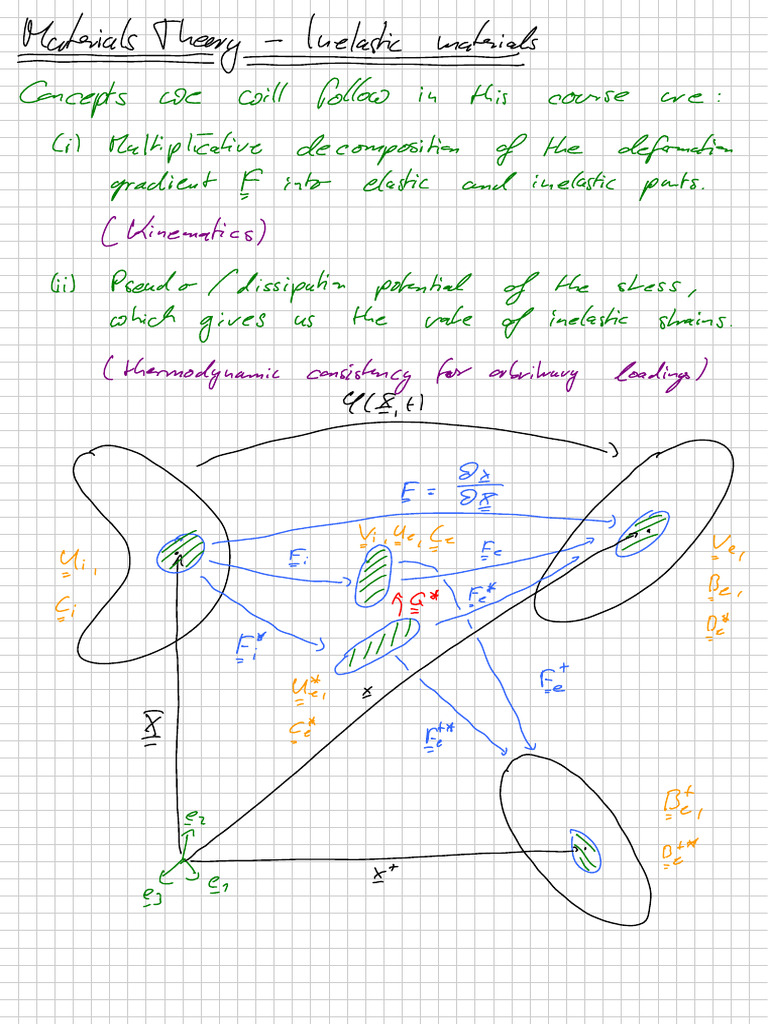 Materials Theory – Inelastic materials
Concepts we will follow in this course are:
(i) Multiplicative decomposition of the deformation
gradient F into elastic and inelastic parts.
(Kinematics)
(ii) Pseudo-/dissipation potential of the stress,
which gives us the rate of inelastic strains.
(thermodynamic consistency for arbitrary loadings)
φ(X, t)
F = ∂x/∂X
V_i, U_e, C_e
F_i
F_e
U_i,
C_i
V_e,
B_e,
B_e^*
G^*
F_e^*
F_i^*
U_e^*,
C_e^*
x
F_e^+
X
F_e^{+*}
B_e^+,
B_e^{+*}
e_2
e_3
e_1
x^+